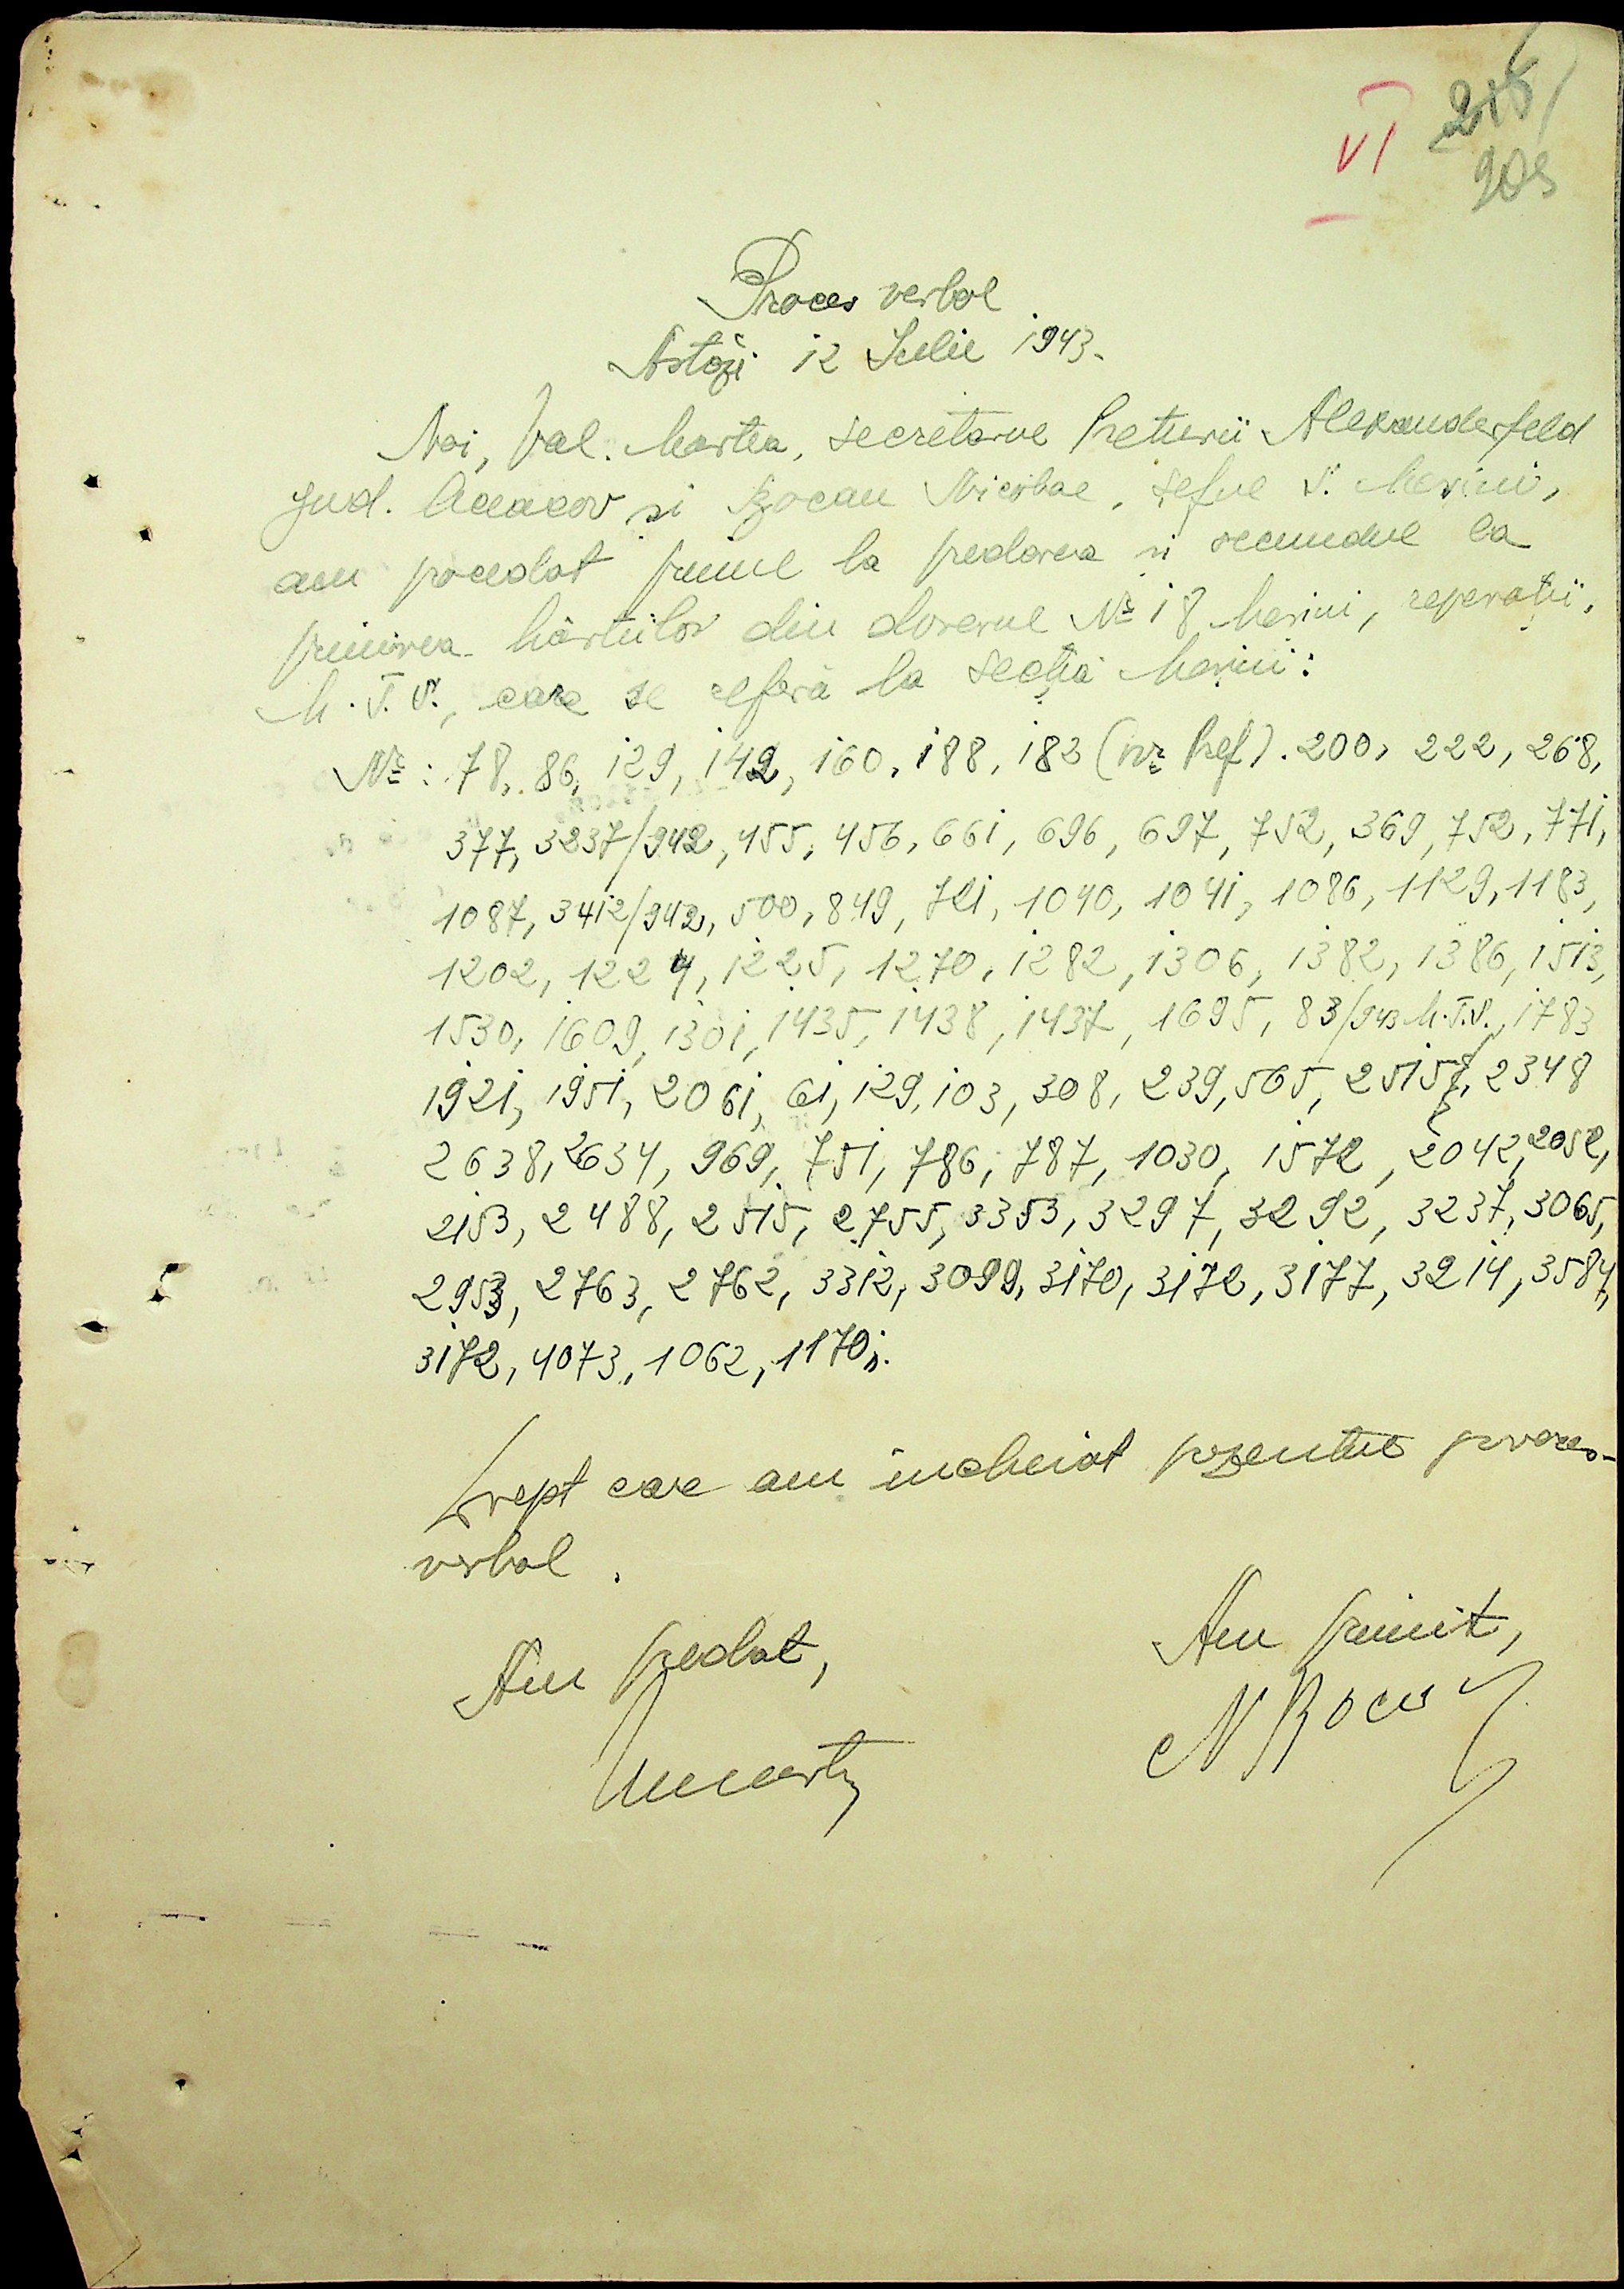 VI
903
Proces verbal
Astăzi 12 Iulie 1943.
Noi, Val. Martea, secretarul Preturii Alexanderfeld
jud. Oceacov și Bocan Nicolae, șeful S. Mașini,
am procedat primul la predarea și secundul la
primirea hârtiilor din dosarul № 18 Mașini, reparații,
M.T.S., care se referă la secția Mașini:
№: 78, 86, 129, 142, 160, 188, 183 (Nr. Pref). 200, 222, 268,
377, 3237/942, 455, 456, 661, 696, 697, 752, 369, 752, 771,
1087, 3412/942, 500, 849, 721, 1040, 1041, 1086, 1129, 1183,
1202, 1224, 1225, 1270, 1282, 1306, 1382, 1386, 1513,
1530, 1609, 1301, 1435, 1438, 1437, 1695, 83/943 M.T.S., 1783
1921, 1951, 2061, 61, 129, 103, 308, 239, 565, 2348
2638, 2634, 969, 751, 786, 787, 1030, 1572, 2042, 2052,
2153, 2488, 2515, 2755, 3353, 3297, 3292, 3237, 3065,
2953, 2763, 2762, 3312, 3099, 3170, 3172, 3177, 3214, 3584,
3172, 4073, 1062, 1170;.
Drept care am încheiat prezentul proces-
verbal.
Am predat,
Am primit,
N Bocan